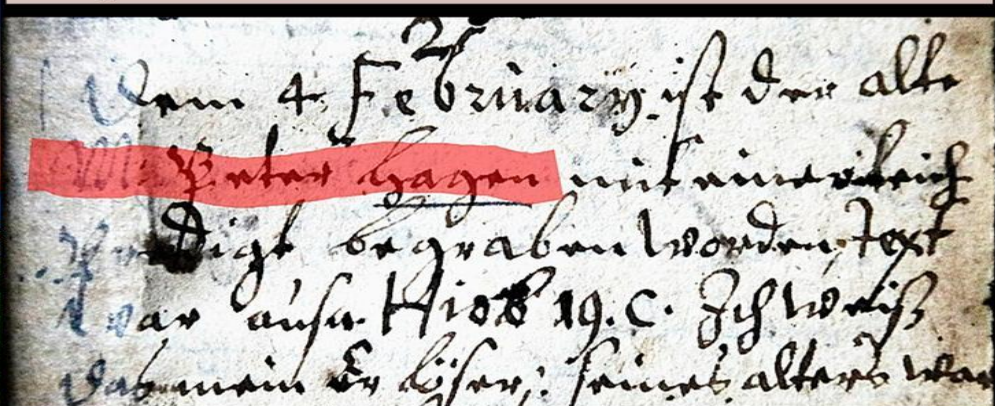 25
Dem 4 February ist der alte
M. Peter Hagen mit einer leich
Predigt begraben worden, Text
war ausm Hiob 19. C. Ich weiß
das mein Erlöser; seines alters war